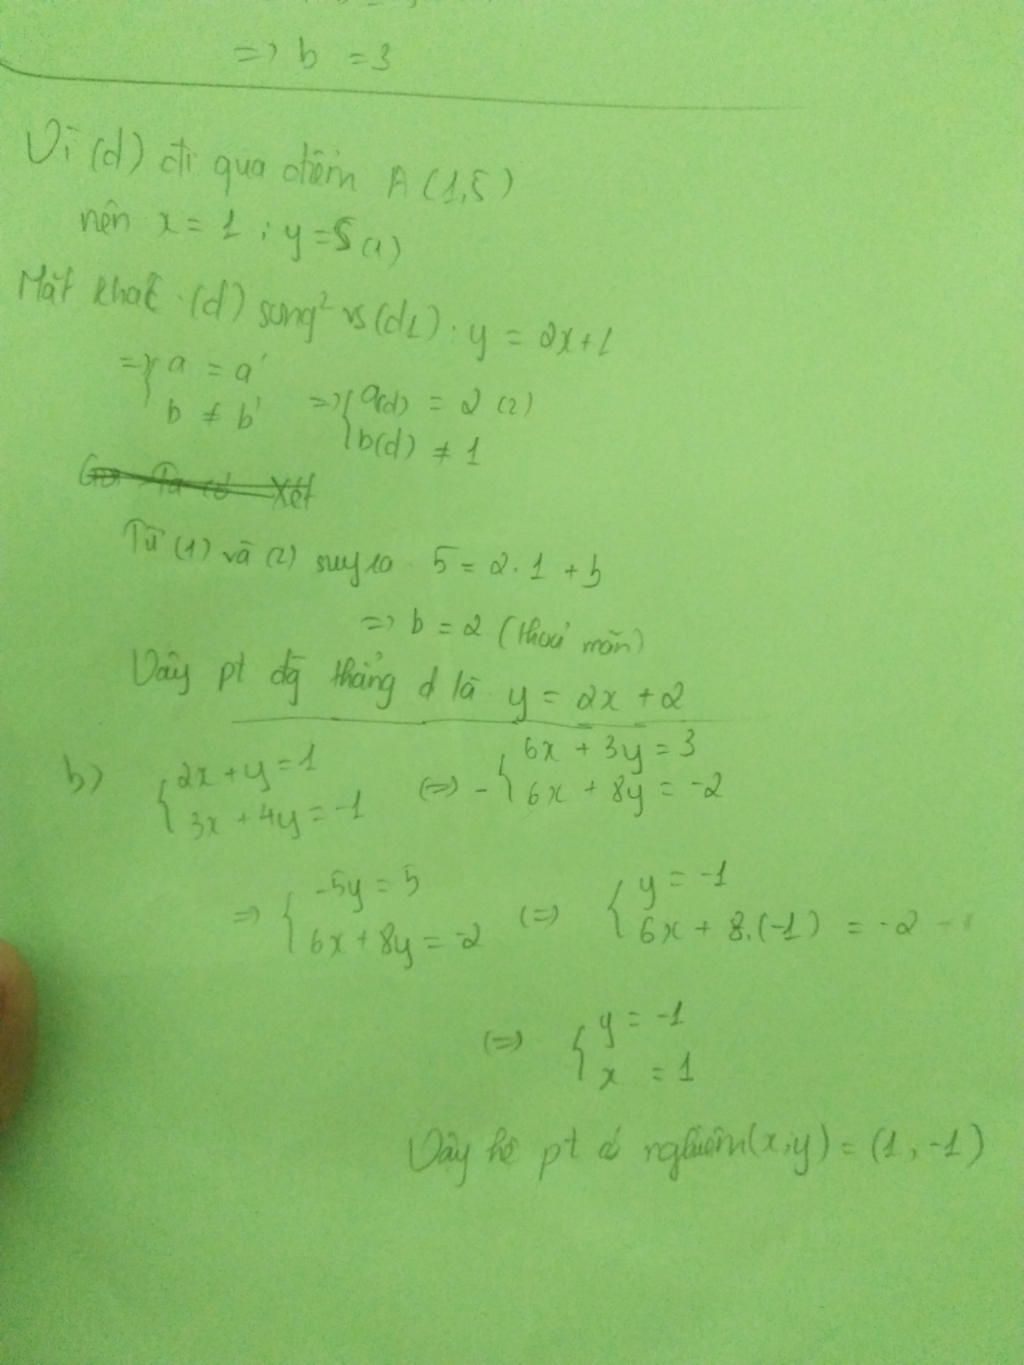 => b = 3
Vì (d) đi qua điểm A (1,5)
nên x = 1 ; y = 5 (1)
Mặt khác (d) song² vs (d1) . y = 2x+1
=> { a = a'
b ≠ b'
=> { a(d) = 2 (2)
b(d) ≠ 1
Ta có Xét
Từ (1) và (2) suy ra 5 = 2.1 + b
=> b = 2 (thoả mãn)
Vậy pt đg thẳng d là y = 2x + 2
b) { 2x + y = 1
3x + 4y = -1
(=) - { 6x + 3y = 3
6x + 8y = -2
=> { -5y = 5
6x + 8y = -2
(=) { y = -1
6x + 8.(-1) = -2
(=) { y = -1
x = 1
Vậy hệ pt có nghiệm (x;y) = (1, -1)